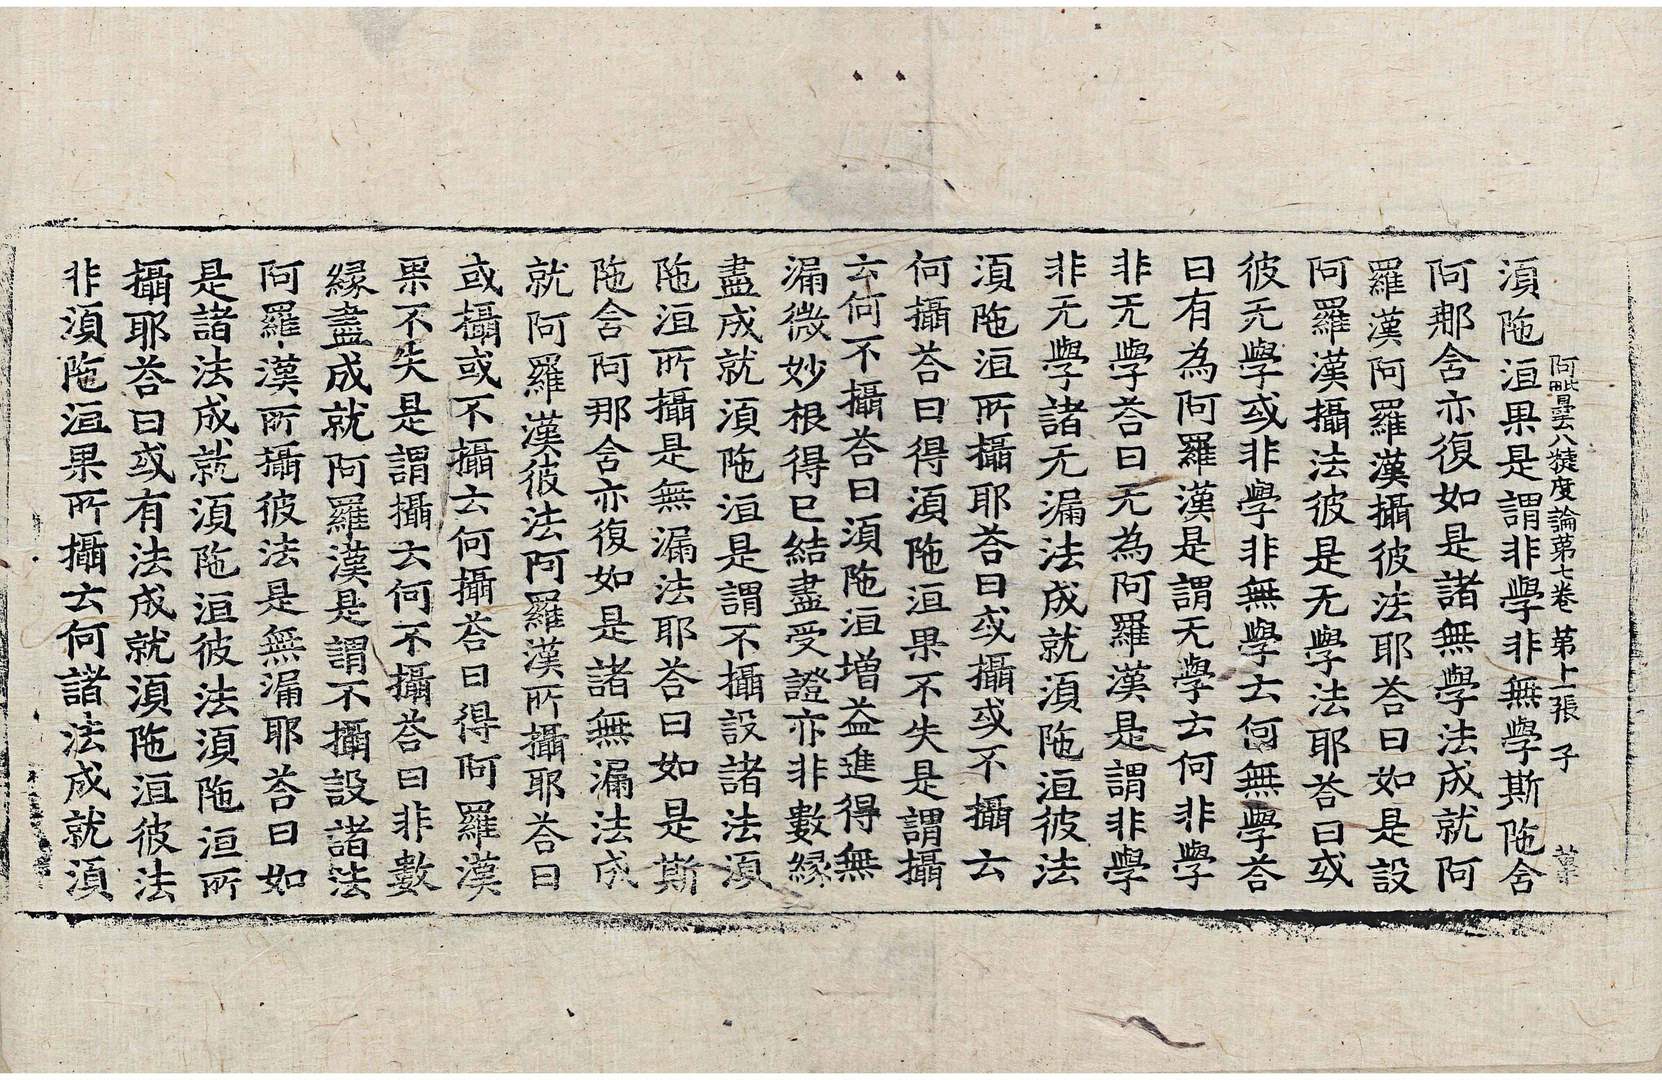 阿毗曇八揵度論第七卷 第十一張 子
湏陁洹果是謂非學非無學斯陁含
阿那含亦復如是諸無學法成就阿
羅漢阿羅漢攝彼法耶荅曰如是設
阿羅漢攝法彼是无學法耶荅曰或
彼无學或非學非無學云何無學荅
曰有為阿羅漢是謂无學云何非學
非无學荅曰无為阿羅漢是謂非學
非无學諸无漏法成就湏陁洹彼法
湏陁洹所攝耶荅曰或攝或不攝云
何攝荅曰得湏陁洹果不失是謂攝
云何不攝荅曰湏陁洹增益進得無
漏微妙根得已結盡受證亦非數緣
盡成就湏陁洹是謂不攝設諸法湏
陁洹所攝是無漏法耶荅曰如是斯
陁含阿那含亦復如是諸無漏法成
就阿羅漢彼法阿羅漢所攝耶荅曰
或攝或不攝云何攝荅曰得阿羅漢
果不失是謂攝云何不攝荅曰非數
緣盡成就阿羅漢是謂不攝設諸法
阿羅漢所攝彼法是無漏耶荅曰如
是諸法成就湏陁洹彼法湏陁洹所
攝耶荅曰或有法成就湏陁洹彼法
非湏陁洹果所攝云何諸法成就湏